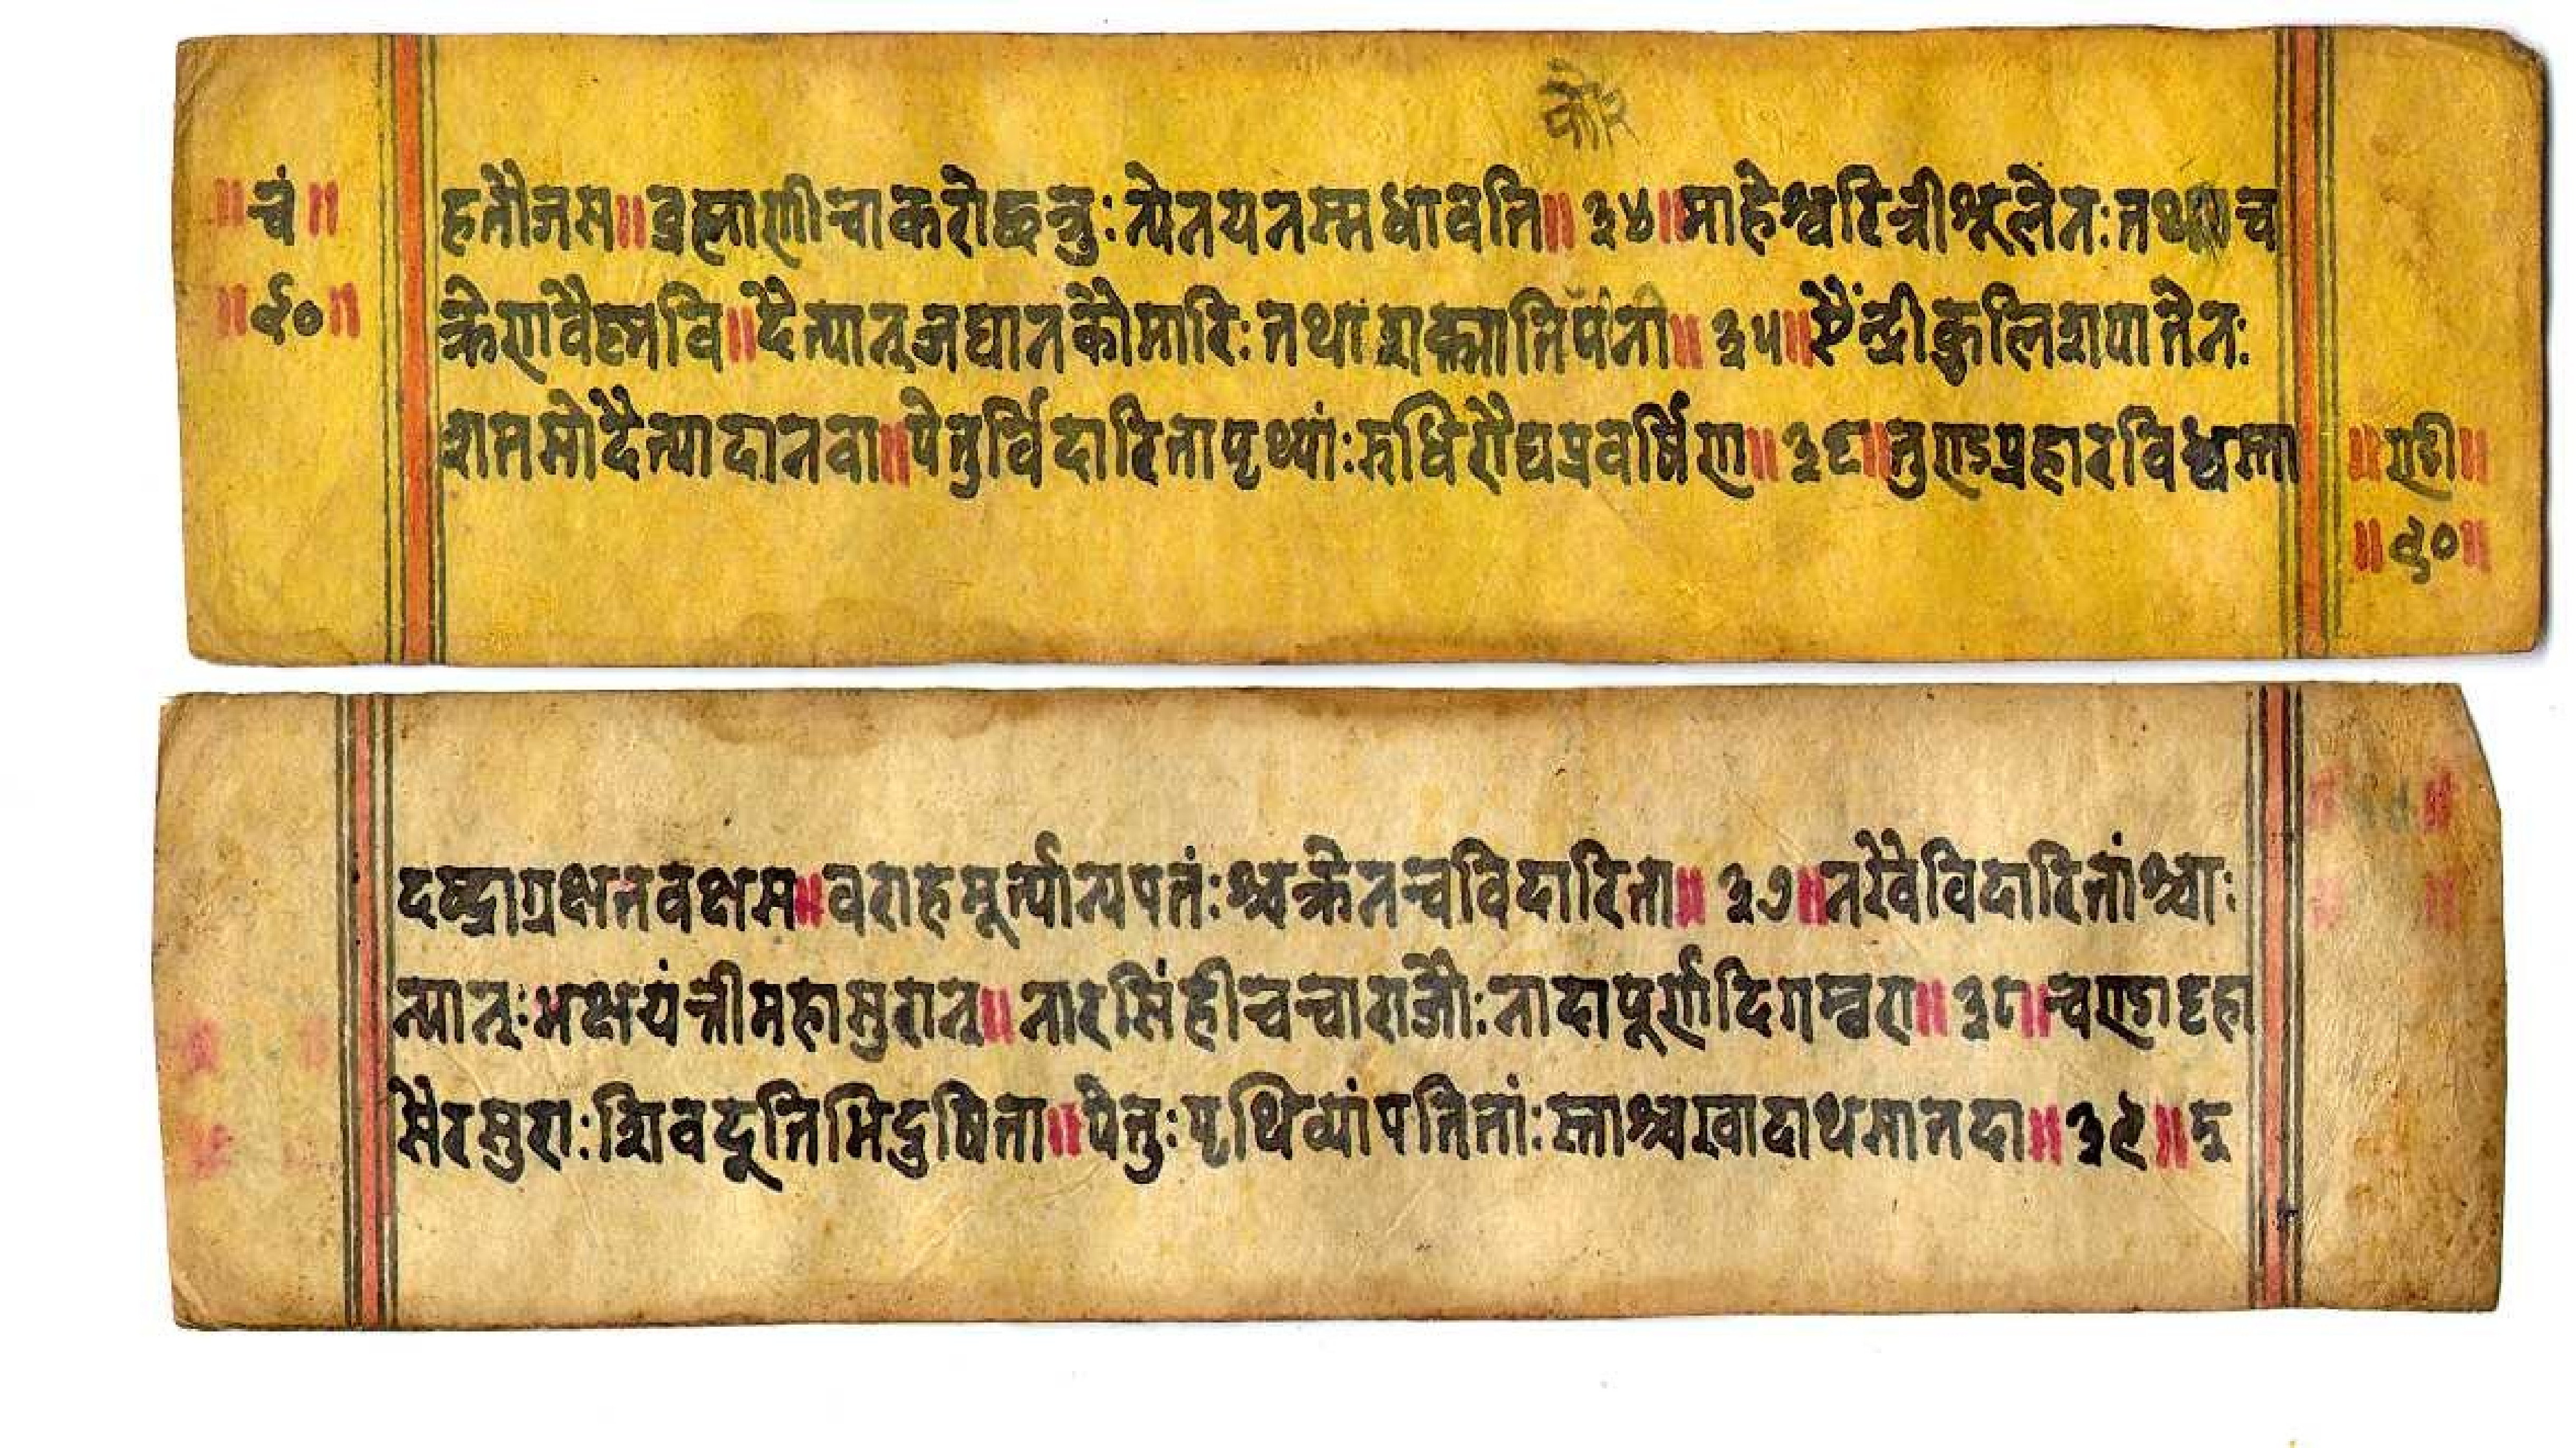 कोर
॥चं॥
॥६०॥
हतौजस॥ब्रह्माणीचाकरोछत्रुः न्येनयनस्मधावति॥३४॥माहेश्वरित्रीश्रूलेनः तथाच
क्रेणवैष्णवि॥दैत्यान्जघानकौमारिः तथाशक्तातिपंनी॥३५॥ऐंन्द्रीकुलिशपातैनः
शतसोदैत्यादानवा॥पेतुर्विदारितापृथ्यांः रुधिरौघप्रवर्षिण॥३६॥तुण्डप्रहारविध्वस्ता
॥ण्डी॥
॥६०॥
दष्ट्राग्रक्षतवक्षस॥वराहमूर्त्यान्यपतंः श्चक्रेनचविदारिता॥३७॥नरेवैविदारितांश्चाः
न्यान्ः भक्षयंत्रीमहासुरान्॥नारसिंहीचचाराजौः नादापूर्णादिगम्बरा॥३८॥चण्डाट्टहा
सैरसुराः शिवदूतिभिदुषिता॥पेतुः पृथिव्यांपतितांः स्ताश्चखादाथसातदा॥३९॥इ